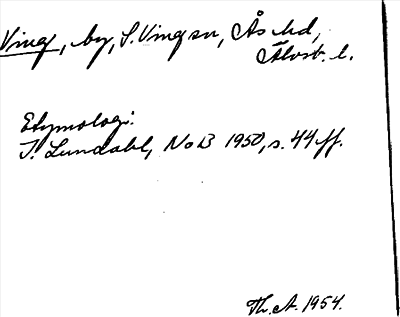 Ving, by, S. Ving sn, Ås hd,
Älvsb. l.
Etymologi:
I. Lundahl, NoB 1950, s. 44 ff.
Th. A. 1954.